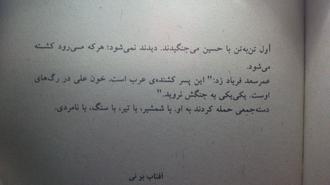 اول تن‌به‌تن با حسین می‌جنگیدند. دیدند نمی‌شود؛ هرکه می‌رود کشته
می‌شود.
عمرسعد فریاد زد: "این پسر کشنده‌ی عرب است. خون علی در رگ‌های
اوست. یکی‌یکی به جنگش نروید."
دسته‌جمعی حمله کردند به او. یا شمشیر، یا تیر، با سنگ، با نامردی.
آفتاب بر نی